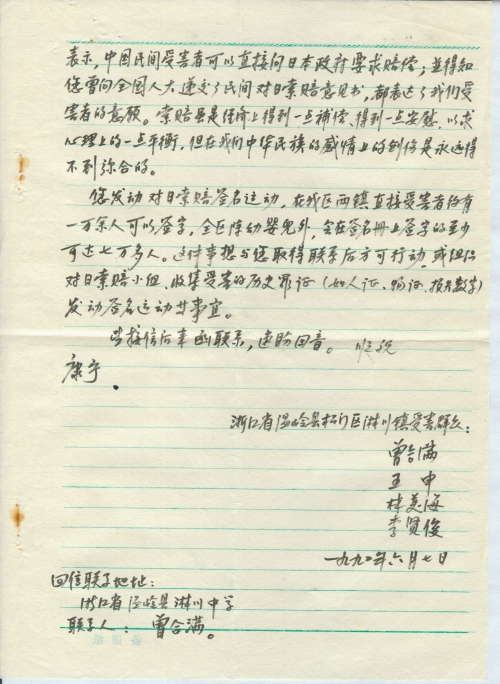 表示,中国民间受害者可以直接向日本政府要求赔偿;並得知
您曾向全国人大递交了民间对日索赔意见书,都表达了我们受
害者的意愿。索赔虽是经济上得到一点補偿、得到一点安慰,以求
心理上的一点平衡,但在我们中华民族的感情上的创伤是永远得
不到弥合的。
您发动对日索赔签名运动,在我区两镇直接受害者约有
一万余人可以签字,全区除幼婴兒外,会在签名册上签字的至少
可达七万多人。这件事想与您取得联系后方可行动,或组织
对日索赔小组、收集受害的历史罪证(如人证、物证、损失数字)
发动签名运动等事宜。
请接信后来函联系,速盼回音。顺祝
康宁.
浙江省温岭县松门区淋川镇受害群众:
曾合满
王申
林美海
李贤俊
一九九二年六月七日
回信联系地址:
浙江省温岭县淋川中学
联系人:曾合满。